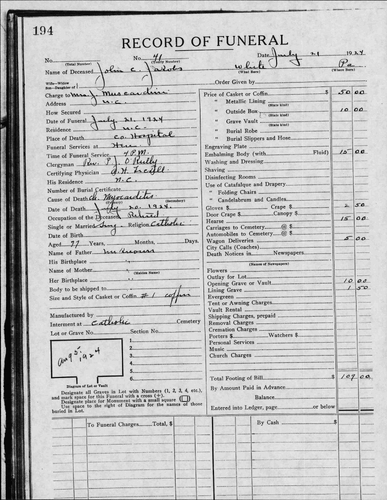 194
RECORD OF FUNERAL
No. No. 41 Date July 21 1924
(Total Number) (Yearly Number)
Name of Deceased John C. White Pa
(What Born) (Where Born)
Charge to Mrs. J. Muscardini
Address N.C.
How Secured
Date of Funeral July 21, 1924
Residence N.C.
Place of Death Co. Hospital
Funeral Services at Here
Time of Funeral Service 4 P.M.
Clergyman Rev. P. J. O'Reilly
Certifying Physician
His Residence N.C.
Number of Burial Certificate
Cause of Death Myocarditis
Date of Death July 20, 1924
Occupation of the Deceased Retired
Single or Married Sing. Religion Catholic
Date of Birth
Aged 77 Years, Months, Days.
Name of Father Unknown
His Birthplace
Name of Mother
(Maiden Name)
Her Birthplace
Body to be shipped to
Size and Style of Casket or Coffin #1 coffin
Manufactured by
Interment at Catholic Cemetery
Lot or Grave No. Section No.
Aug 5, 1924
1.
2.
3.
4.
5.
6.
Diagram of Lot or Vault
Designate all Graves in Lot with Numbers (1, 2, 3, 4, etc.), and mark space for this Funeral with a cross (+).
Designate place for Monument with a small square
Use space to the right of Diagram for the names of those buried in Lot.
Order Given by
Price of Casket or Coffin $ 50 00
" Metallic Lining
(State Kind)
" Outside Box 10 00
(State Kind)
" Grave Vault
(State Kind)
" Burial Robe
(State Kind)
" Burial Slippers and Hose
Engraving Plate
Embalming Body (with Fluid) 15 00
Washing and Dressing
Shaving
Disinfecting Rooms
Use of Catafalque and Drapery
" Folding Chairs
" Candelabrum and Candles
Gloves $ Crape $ 2 50
Door Crape $ Canopy $
Hearse 15 00
Carriages to Cemetery @ $
Automobiles to Cemetery @ $
Wagon Deliveries 5 00
City Calls (Coaches)
Death Notices in Newspapers
(Names of Newspapers)
Flowers
Outlay for Lot
Opening Grave or Vault 10 00
Lining Grave 1 50
Evergreen
Tent or Awning Charges
Vault Rental
Shipping Charges, prepaid
Removal Charges
Cremation Charges
Porters $ Watchers $
Personal Services
Music
Church Charges
Total Footing of Bill $ 109 00
By Amount Paid in Advance
Balance
Entered into Ledger, page or below
To Funeral Charges, Total, $
By Cash $